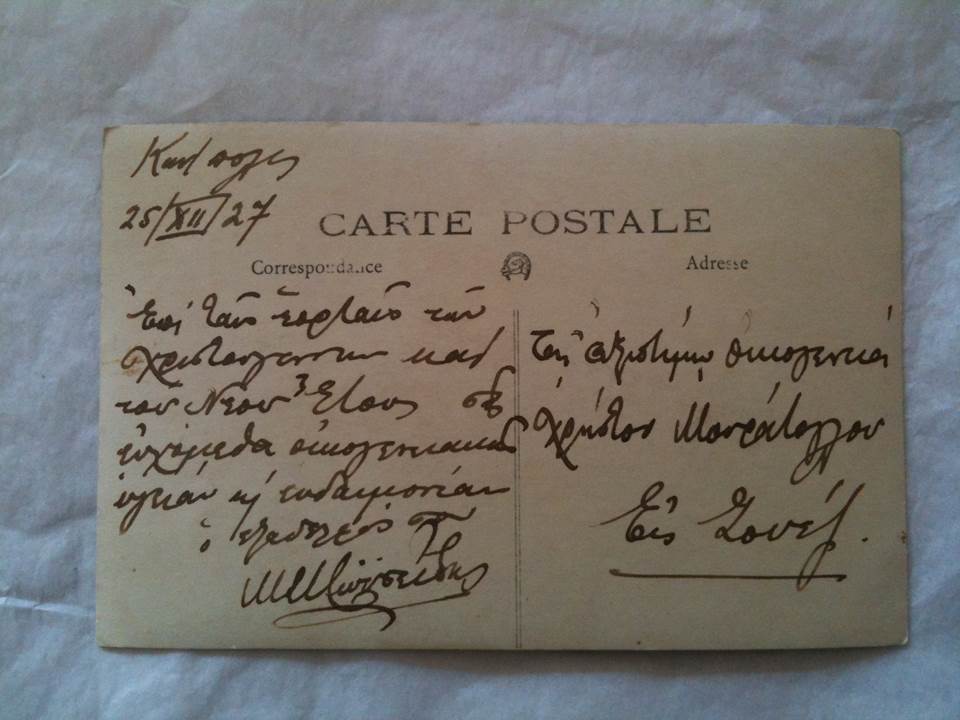 Κων/πολις
25/XII/27
CARTE POSTALE
Correspondance
Adresse
Ἐπὶ ταῖς ἑορταῖς τῶν
Χριστουγέννων καὶ
τοῦ Νέου Ἔτους σᾶς
εὐχόμεθα οἰκογενειακῶς
ὑγείαν κ εὐδαιμονίαν
ὁ
Τῇ ἀξιοτίμῳ οἰκογενείᾳ
Χρήστου Μουράτογλου
Εἰς Σουέζ.